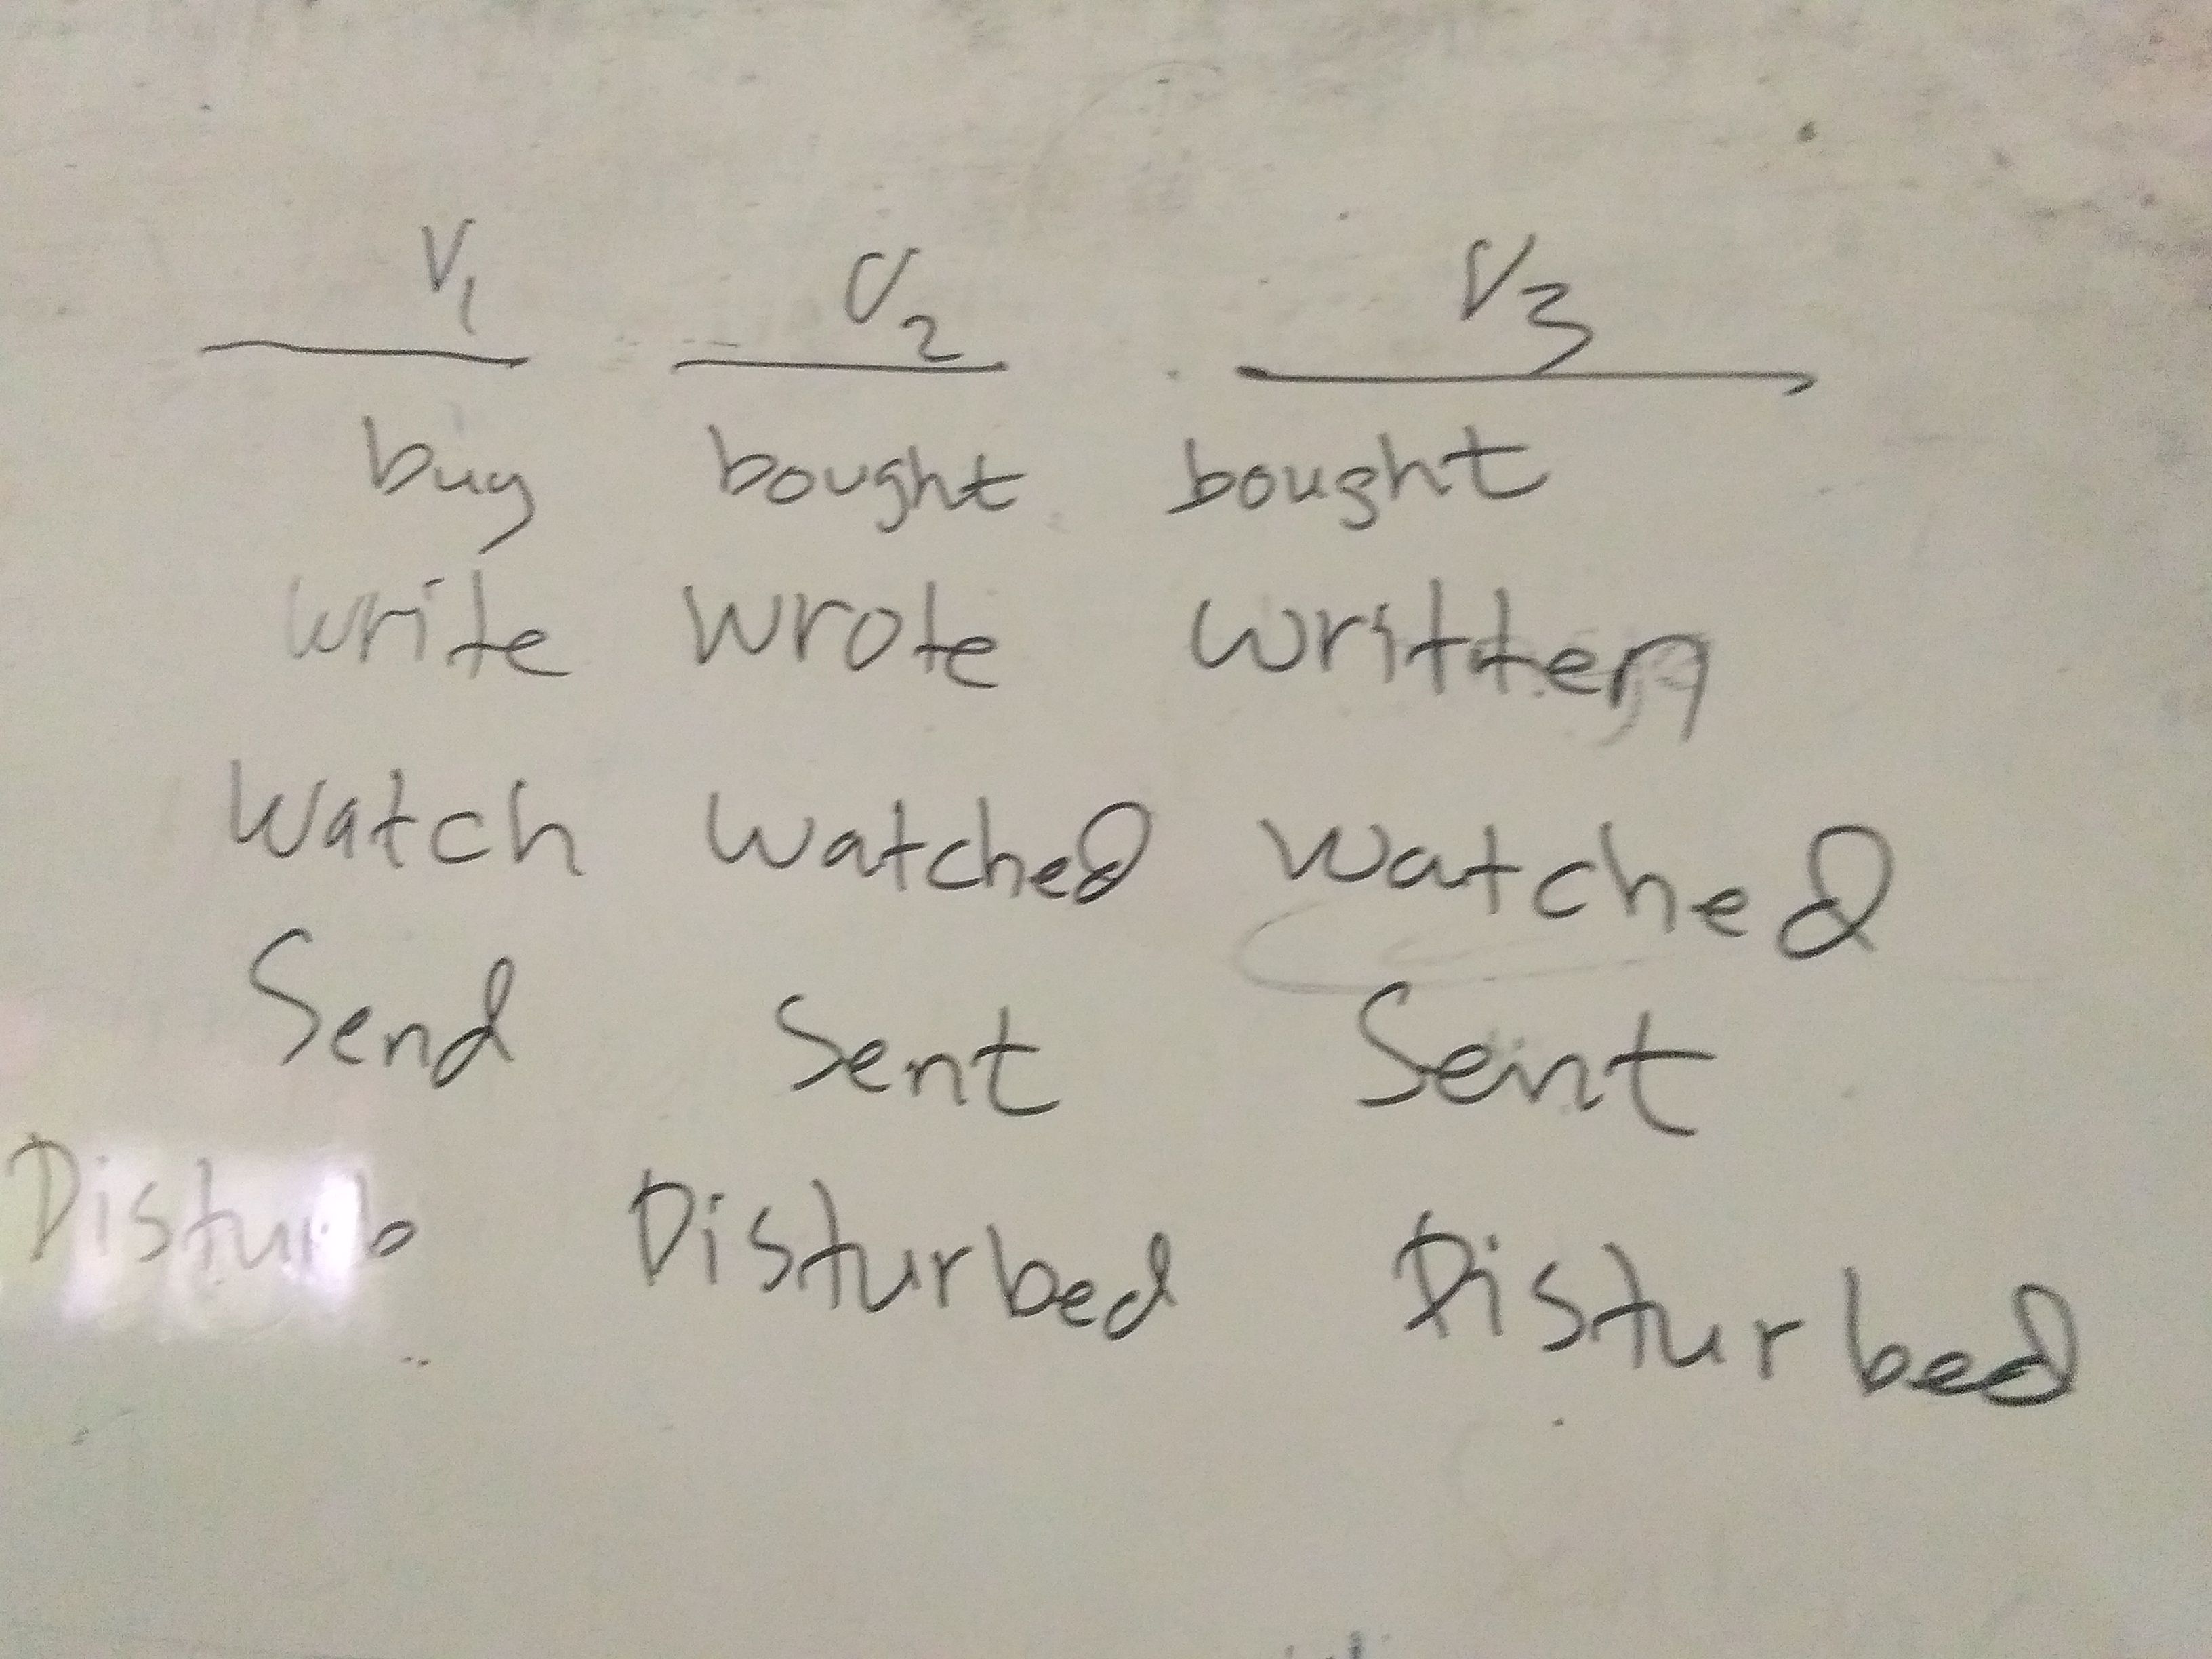 V1 V2 V3
buy bought bought
write wrote written
Watch Watched Watched
Send Sent Sent
Disturb Disturbed Disturbed